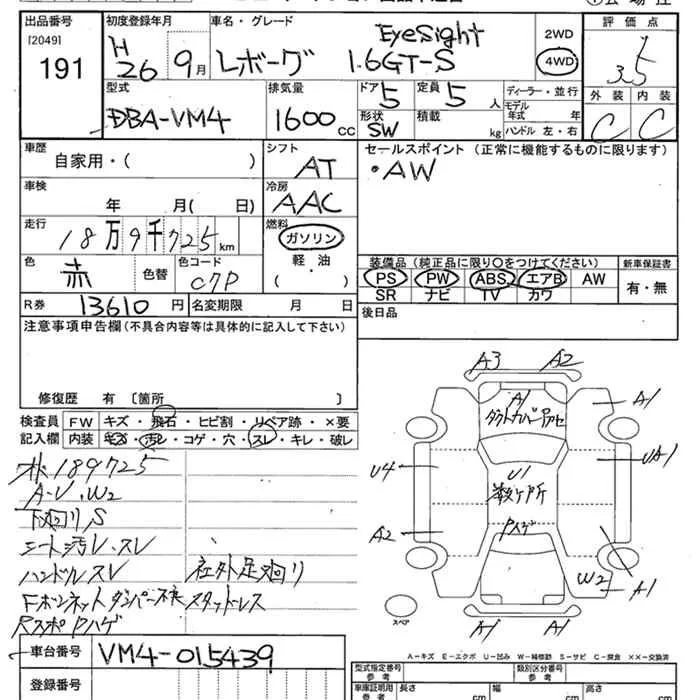 出品番号
[2049]
191
初度登録年月
H
26 9月
車名・グレード
EyeSight
レボーグ 1.6GT-S
2WD
4WD
評価点
3.5
外装 内装
C C
型式
DBA-VM4
排気量
1600 CC
ドア 5
定員 5 人
形状 SW
積載 kg
ディーラー・並行
モデル年式 年
ハンドル 左・右
車歴
自家用・( )
シフト
AT
セールスポイント (正常に機能するものに限ります)
・AW
車検
年 月( 日)
冷房
AAC
走行
18万9千725km
燃料
ガソリン
軽・油
( )
色
赤 色替
色コード
C7P
装備品 (純正品に限り○をつけてください)
PS PW ABS エアB AW
SR ナビ TV カワ
新車保証書
有・無
R券 13610円
名変期限 月 日
後日品
注意事項申告欄(不具合内容等は具体的に記入して下さい)
修復歴 有 〔箇所 〕
検査員記入欄
FW キズ・飛石・ヒビ割・リペア跡・×要
内装 キズ・汚レ・コゲ・穴・スレ・キレ・破レ
189725
A-U、W2
下廻り、S
シート汚レ、スレ
ハンドルスレ 社外足廻り
Fボンネットダンパー不良 スタッドレス
RスポPハゲ
A3 A2
A1
A1
ダクトカバー
U4
UA1
U1
数ヶ所
Pハゲ
A2
W2
A1
A1 A1
スペア
車台番号 VM4-015439
登録番号
A-キズ E-エクボ U-凹み W-補修跡 S-サビ C-腐食 ××-交換済
型式指定番号
参考
類別区分番号
参考
車庫証明用
参考
長さ cm
幅 cm
高さ cm